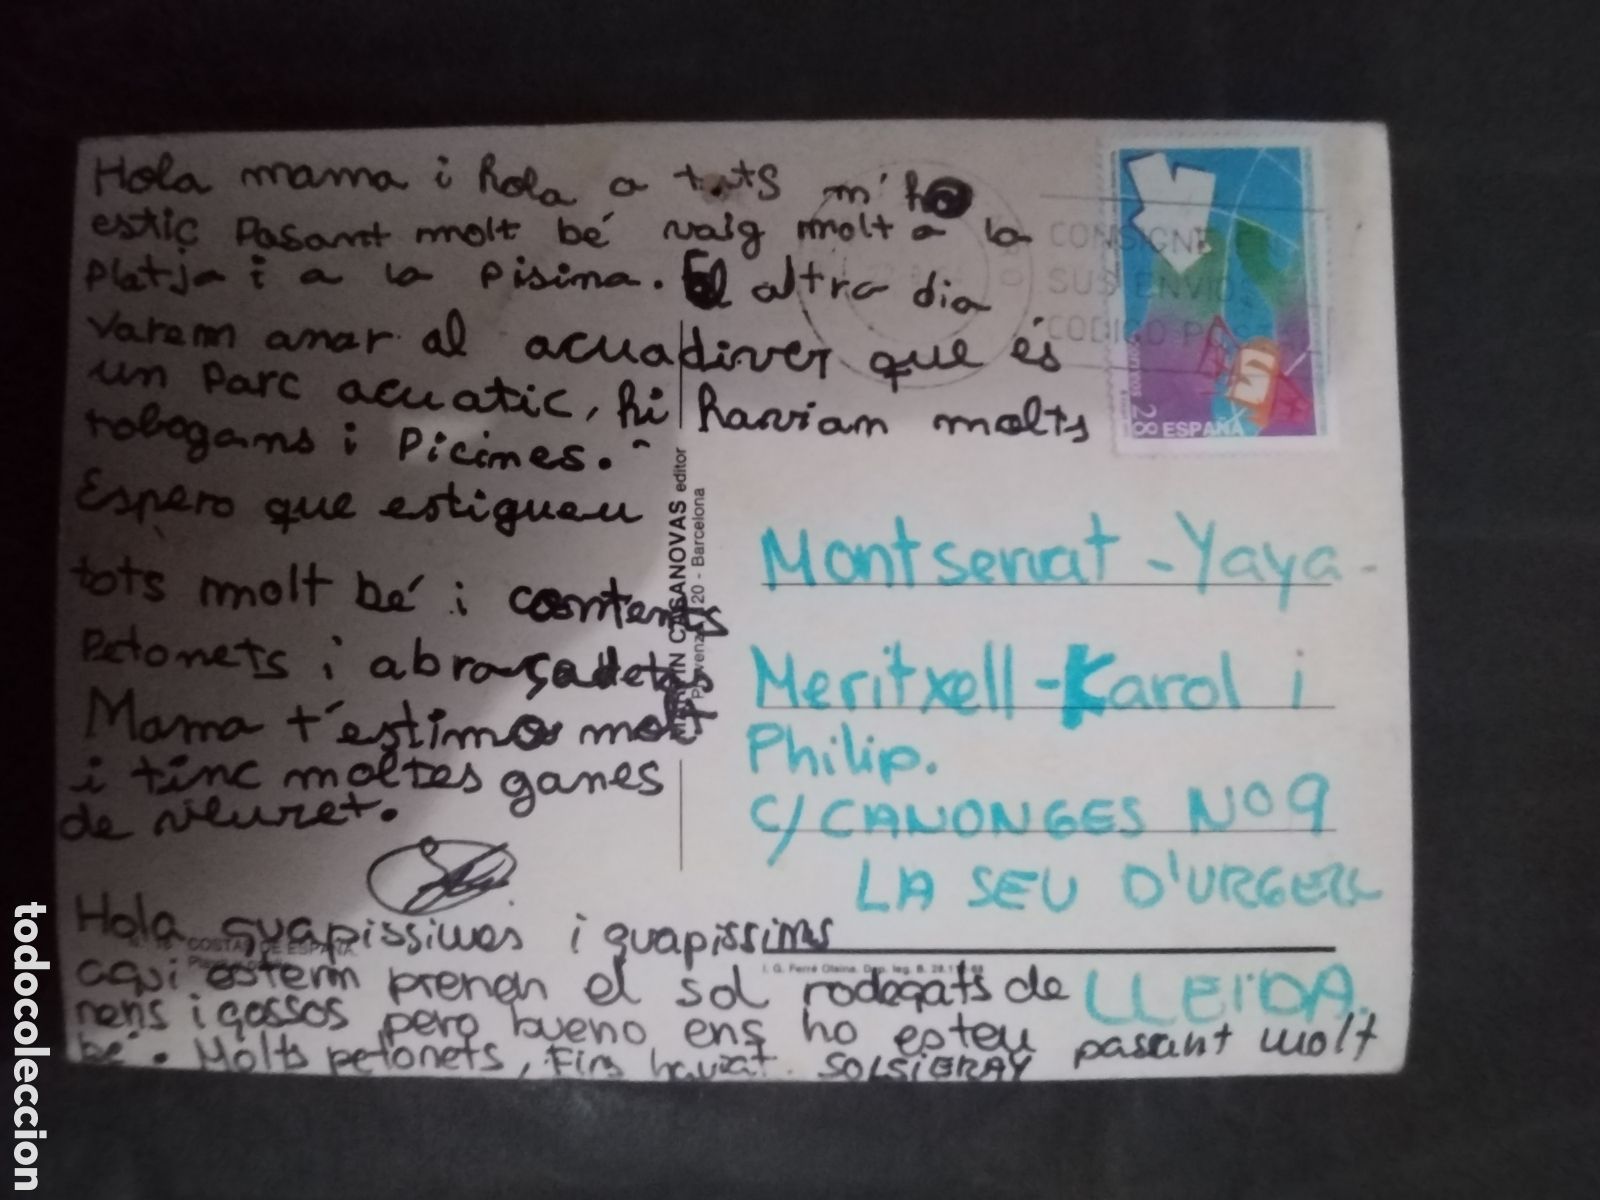 Hola mama i hola a tots m'ho
estic Pasant molt bé vaig molt a la
platja i a la pisina. El altra dia
varem anar al acuadiver que és
un Parc acuatic, hi havian molts
tobogans i Picines.
Espero que estigueu
tots molt bé i contents
Petonets i abraçadetas
Mama t'estimo molt
i tinc moltes ganes
de veuret.
Hola guapissimes i guapissims
aqui esterm prenen el sol rodegats de
nens i gossos pero bueno ens ho esteu pasant molt
bé. Molts petonets, Fins haviat.
CONSIGNE
SUS ENVIOS
CODIGO POS
28 ESPAÑA
CASANOVAS editor
20 - Barcelona
Montserrat - Yaya -
Meritxell - Karol i
Philip.
C/ CANONGES Nº 9
LA SEU D'URGELL
LLEIDA.
COSTAS DE ESPAÑA
I. G. Ferré Olsina. Dep. leg. B. 28.1
todocoleccion